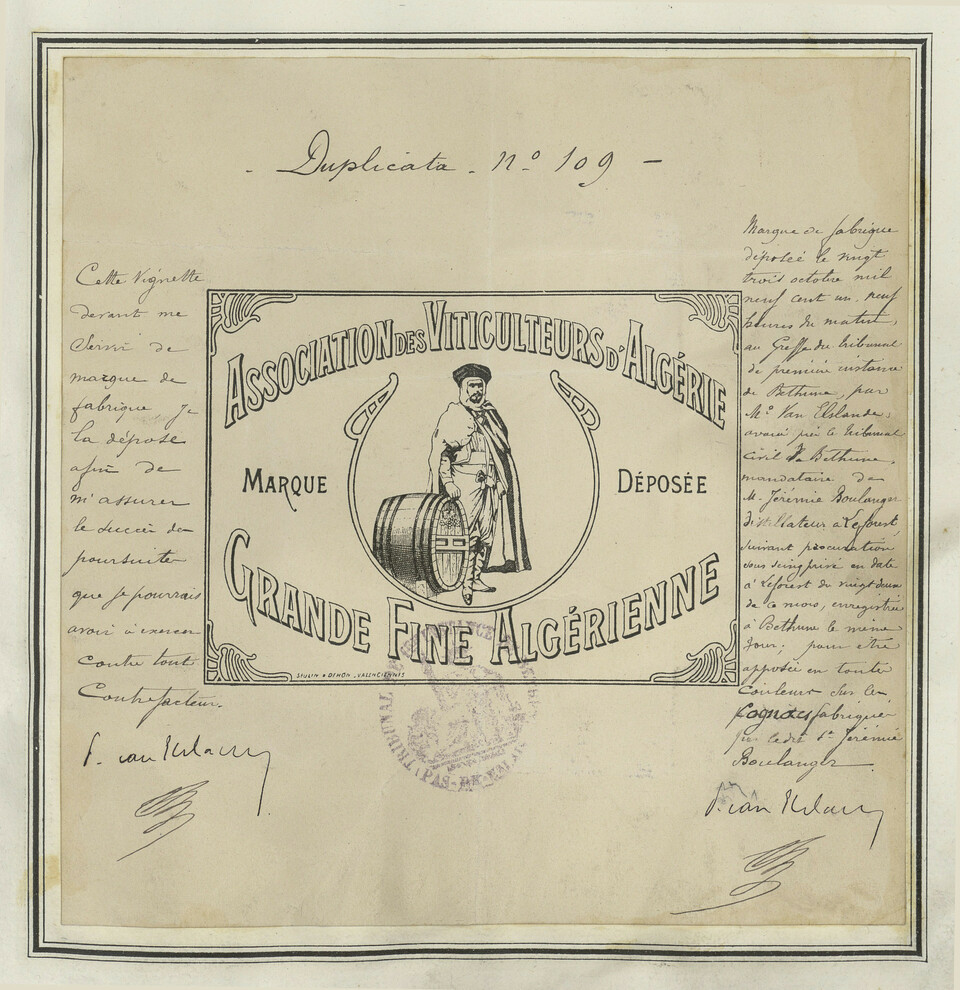 - Duplicata - Nº 109 -
Cette Vignette
devant me
Servir de
marque de
fabrique Je
la dépose
afin de
m'assurer
le succès des
poursuites
que je pourrais
avoir à exercer
contre tout
Contrefacteur.
P. van Elslande
ASSOCIATION DES VITICULTEURS D'ALGÉRIE
MARQUE DÉPOSÉE
GRANDE FINE ALGÉRIENNE
SEULIN & DEHON _ VALENCIENNES
TRIBUNAL DE INSTANCE
(PAS-DE-CALAIS)
Marque de fabrique
déposée le vingt
trois octobre mil
neuf cent un, neuf
heures du matin,
au Greffe du tribunal
de première instance
de Béthune, par
Mº Van Elslande,
avoué près le tribunal
civil de Béthune,
mandataire de
M. Jérémie Boulanger
distillateur à Leforest
suivant procuration
sous seing privé en date
à Leforest du vingt deux
de ce mois, enregistrée
à Béthune le même
jour; pour être
apposée en toute
couleurs sur les
cognacs fabriqués
par le dit Sr Jérémie
Boulanger.
P. van Elslande